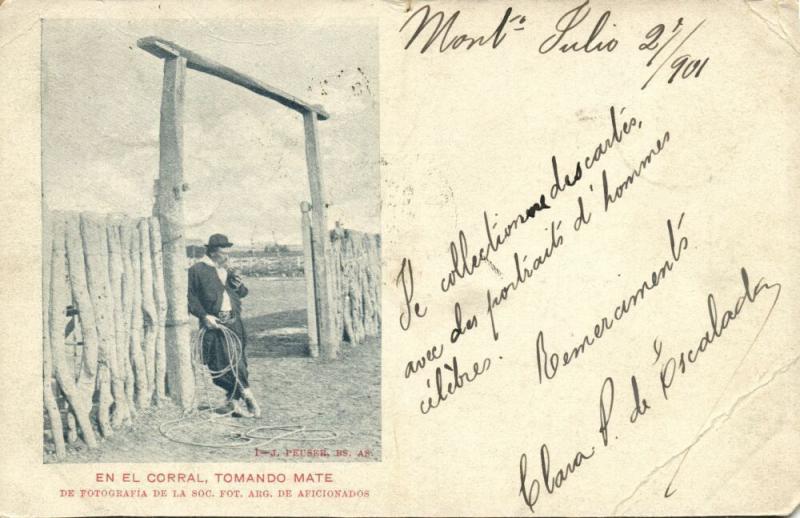 Monto. Julio 21/901
Je collectionne des cartes,
avec des portraits d'hommes
célèbres. Remerciments.
Clara P. de Escalada
1—J. PEUSER, BS. AS.
EN EL CORRAL, TOMANDO MATE
DE FOTOGRAFIA DE LA SOC. FOT. ARG. DE AFICIONADOS